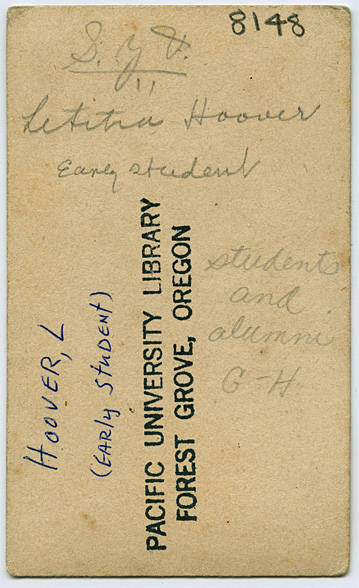 8148
S. y V.
11
Letitia Hoover
Early student
students
and
alumni
G-H
PACIFIC UNIVERSITY LIBRARY
FOREST GROVE, OREGON
HOOVER, L
(EARLY STUDENT)